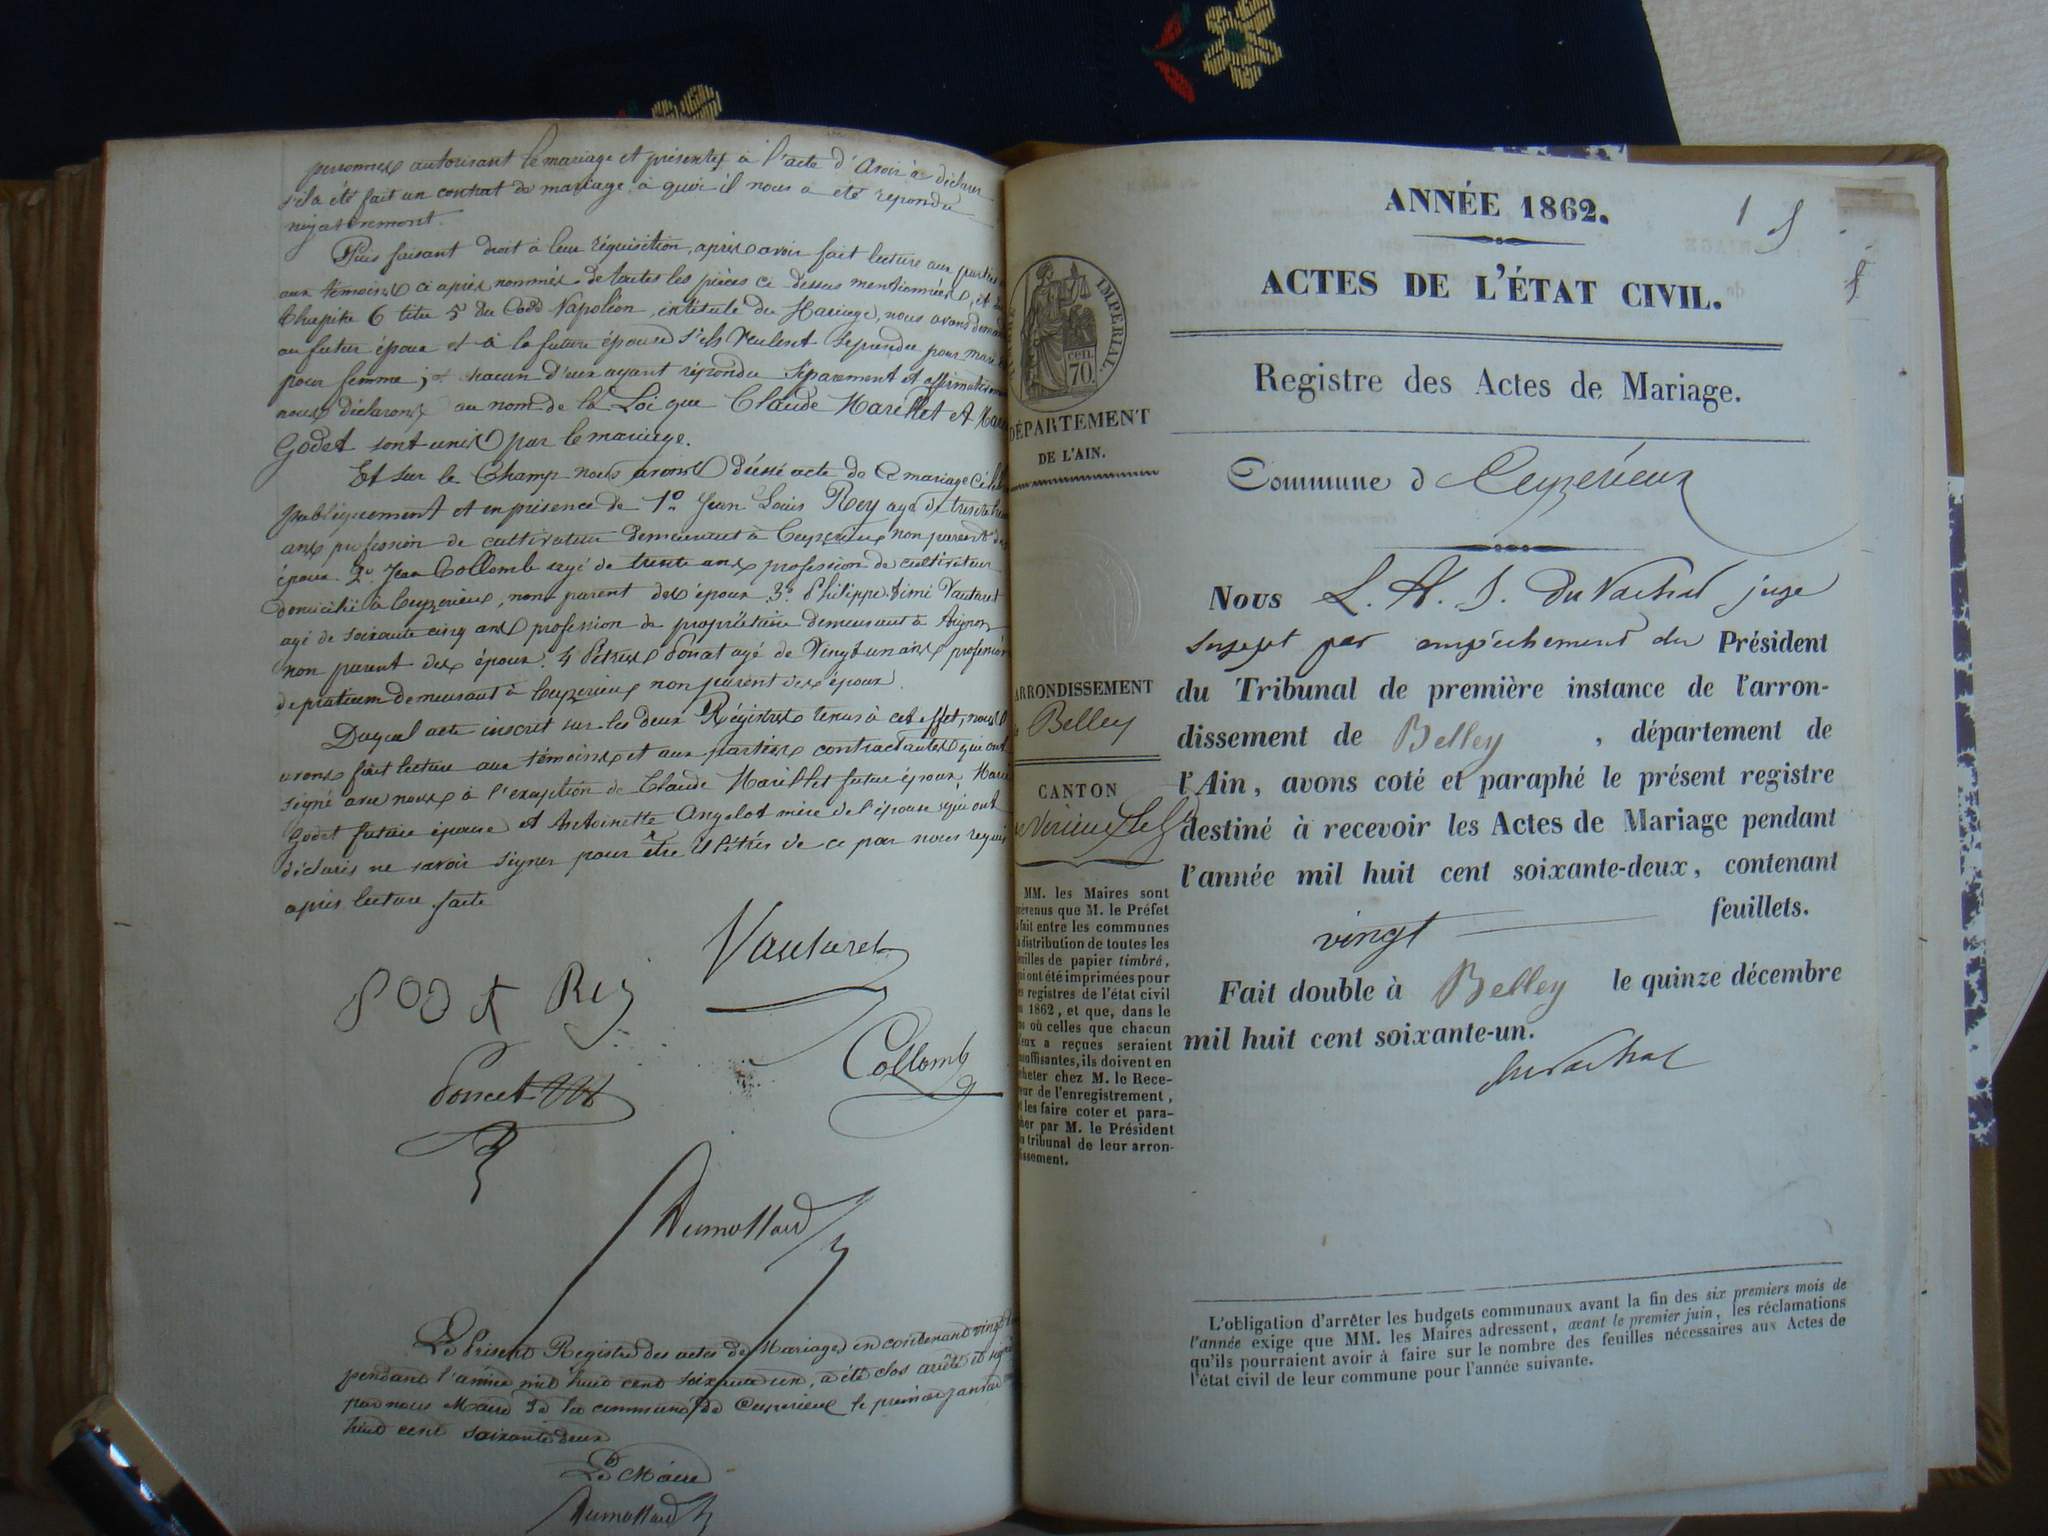 personnes autorisant le mariage et présentes à l'acte d'avoir à déclarer
s'il a été fait un contrat de mariage à quoi il nous a été répondu
négativement.
Puis faisant droit à leur réquisition, après avoir fait lecture aux parties
aux témoins ci après nommés de toutes les pièces ci dessus mentionnées, et du
Chapitre 6 titre 5 du Code Napoléon, intitulé du Mariage, nous avons
au futur époux et à la future épouse s'ils veulent se prendre pour mari
pour femme; chacun d'eux ayant répondu séparément et
nous déclarons au nom de la Loi que Claude Marillet et
Godet sont unis par le mariage.
Et sur le Champ nous avons dressé acte de ce mariage
publiquement et en présence de 1o. Jean Louis Rey agé de
ans profession de cultivateur demeurant à Ceyzerieux non parent des
époux 2o. Jean Collomb agé de trente ans profession de cultivateur
domicilié à Ceyzerieux, non parent des époux 3o. Philippe Aimé Vautaret
agé de soixante cinq ans profession de propriétaire demeurant à Avignon
non parent des époux. 4 agé de Vingt un ans profession
demeurant à Ceyzerieux non parent des époux.
Duquel acte inscrit sur les deux Régistres tenus à cet effet, nous
avons fait lecture aux témoins et aux parties contractantes qui ont
signé avec nous à l'exception de Claude Marillet futur époux,
Godet future épouse et Antoinette Angelot mère de l'épouse qui ont
déclarés ne savoir signer pour être illétrés de ce par nous requis
après lecture faite
Vautaret
Rey
Collomb
Poncet
Dumollard
Le Présent Registre des actes de Mariage en contenant
pendant l'année mil huit cent soixante un, a été clos arrêté et signé
par nous Maire de la commune de Ceyzerieux le premier janvier
huit cent soixante deux
Le Maire
Dumollard
ANNÉE 1862.
1
ACTES DE L'ÉTAT CIVIL.
Registre des Actes de Mariage.
TIMBRE IMPERIAL.
70 cen.
DÉPARTEMENT
DE L'AIN.
Commune d Ceyzérieux
Nous L. A. J. Du Vachat juge
suppt par empêchement du Président
du Tribunal de première instance de l'arron-
dissement de Belley , département de
l'Ain, avons coté et paraphé le présent registre
destiné à recevoir les Actes de Mariage pendant
l'année mil huit cent soixante-deux, contenant
vingt feuillets.
Fait double à Belley le quinze décembre
mil huit cent soixante-un.
Du Vachat
ARRONDISSEMENT
Belley
CANTON
MM. les Maires sont
prévenus que M. le Préfet
a fait entre les communes
la distribution de toutes les
feuilles de papier timbré,
qui ont été imprimées pour
les registres de l'état civil
en 1862, et que, dans le
cas où celles que chacun
d'eux a reçues seraient
insuffisantes, ils doivent en
acheter chez M. le Rece-
veur de l'enregistrement,
et les faire coter et para-
pher par M. le Président
du tribunal de leur arron-
dissement.
L'obligation d'arrêter les budgets communaux avant la fin des six premiers mois de
l'année exige que MM. les Maires adressent, avant le premier juin, les réclamations
qu'ils pourraient avoir à faire sur le nombre des feuilles nécessaires aux Actes de
l'état civil de leur commune pour l'année suivante.